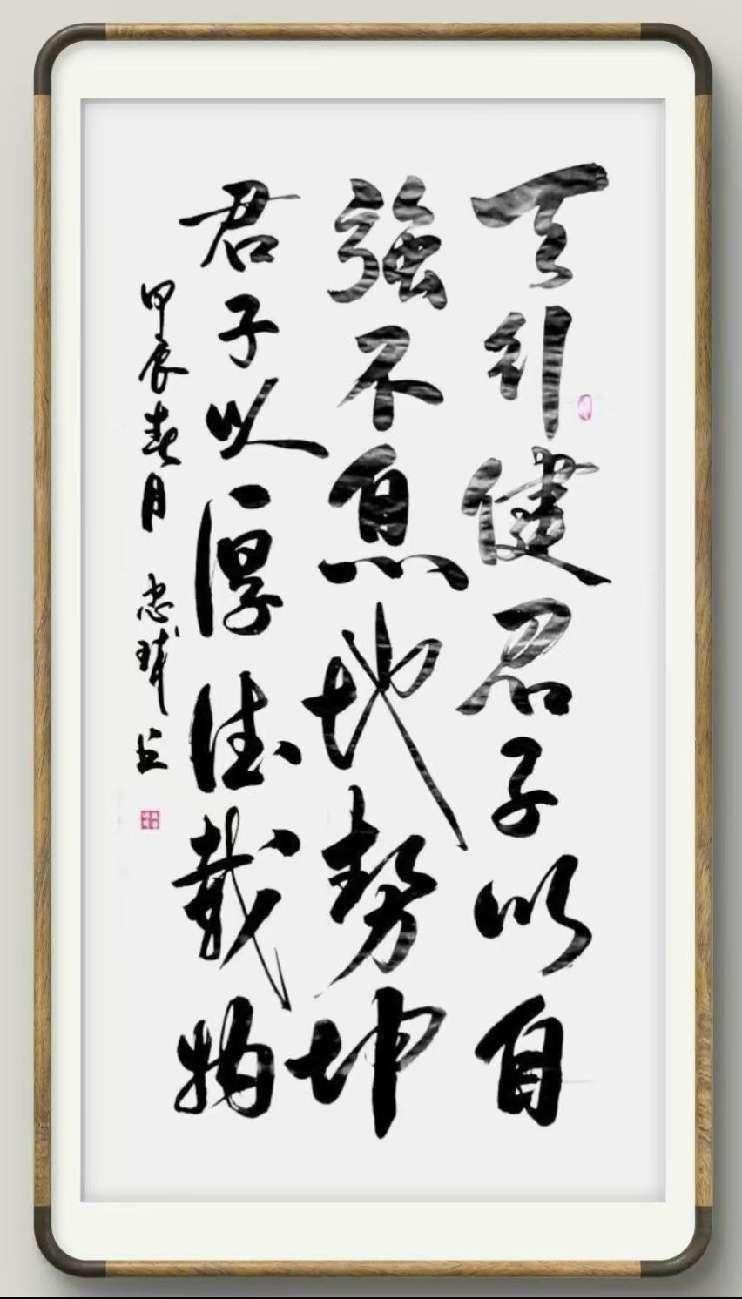 天行健君子以自
強不息地勢坤
君子以厚德載物
甲辰春月 忠瑋书